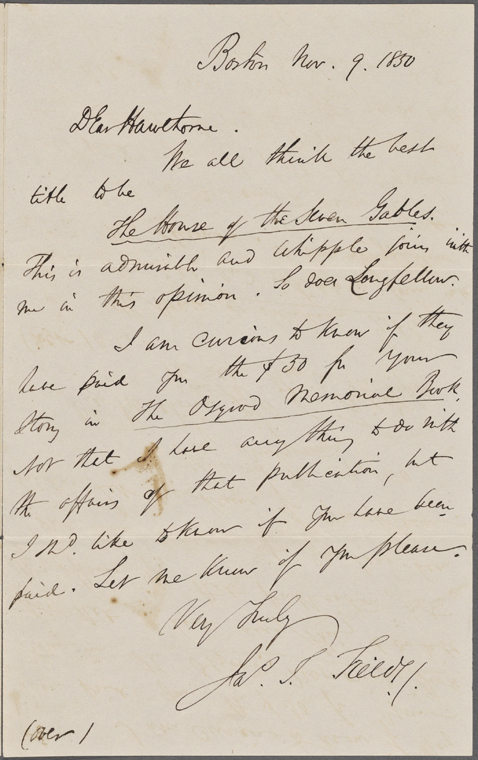 Boston Nov. 9. 1850
Dear Hawthorne.
We all think the best
title to be
The House of the Seven Gables.
This is admirable and Whipple joins with
me in this opinion. So does Longfellow.
I am curious to know if they
have paid you the $50 for your
Story in The Osgood Memorial Book.
Not that I have anything to do with
the affairs of that publication, but
I shd. like to know if you have been
paid. Let me know if you please.
Very Truly
Jas. T. Fields.
(over)